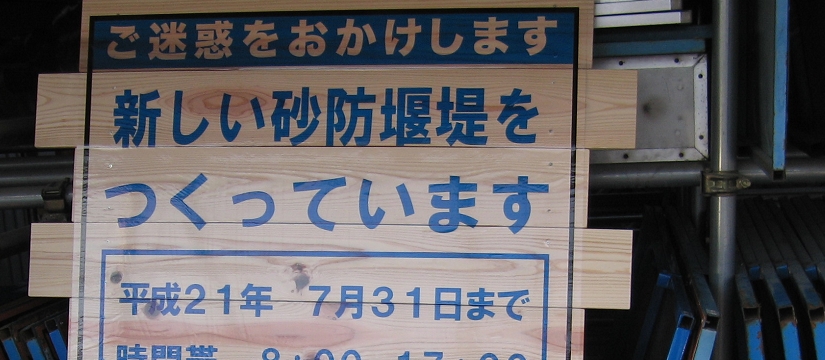 ご迷惑をおかけします
新しい砂防堰堤を
つくっています
平成21年 7月31日まで
時間帯 8:00 17:00